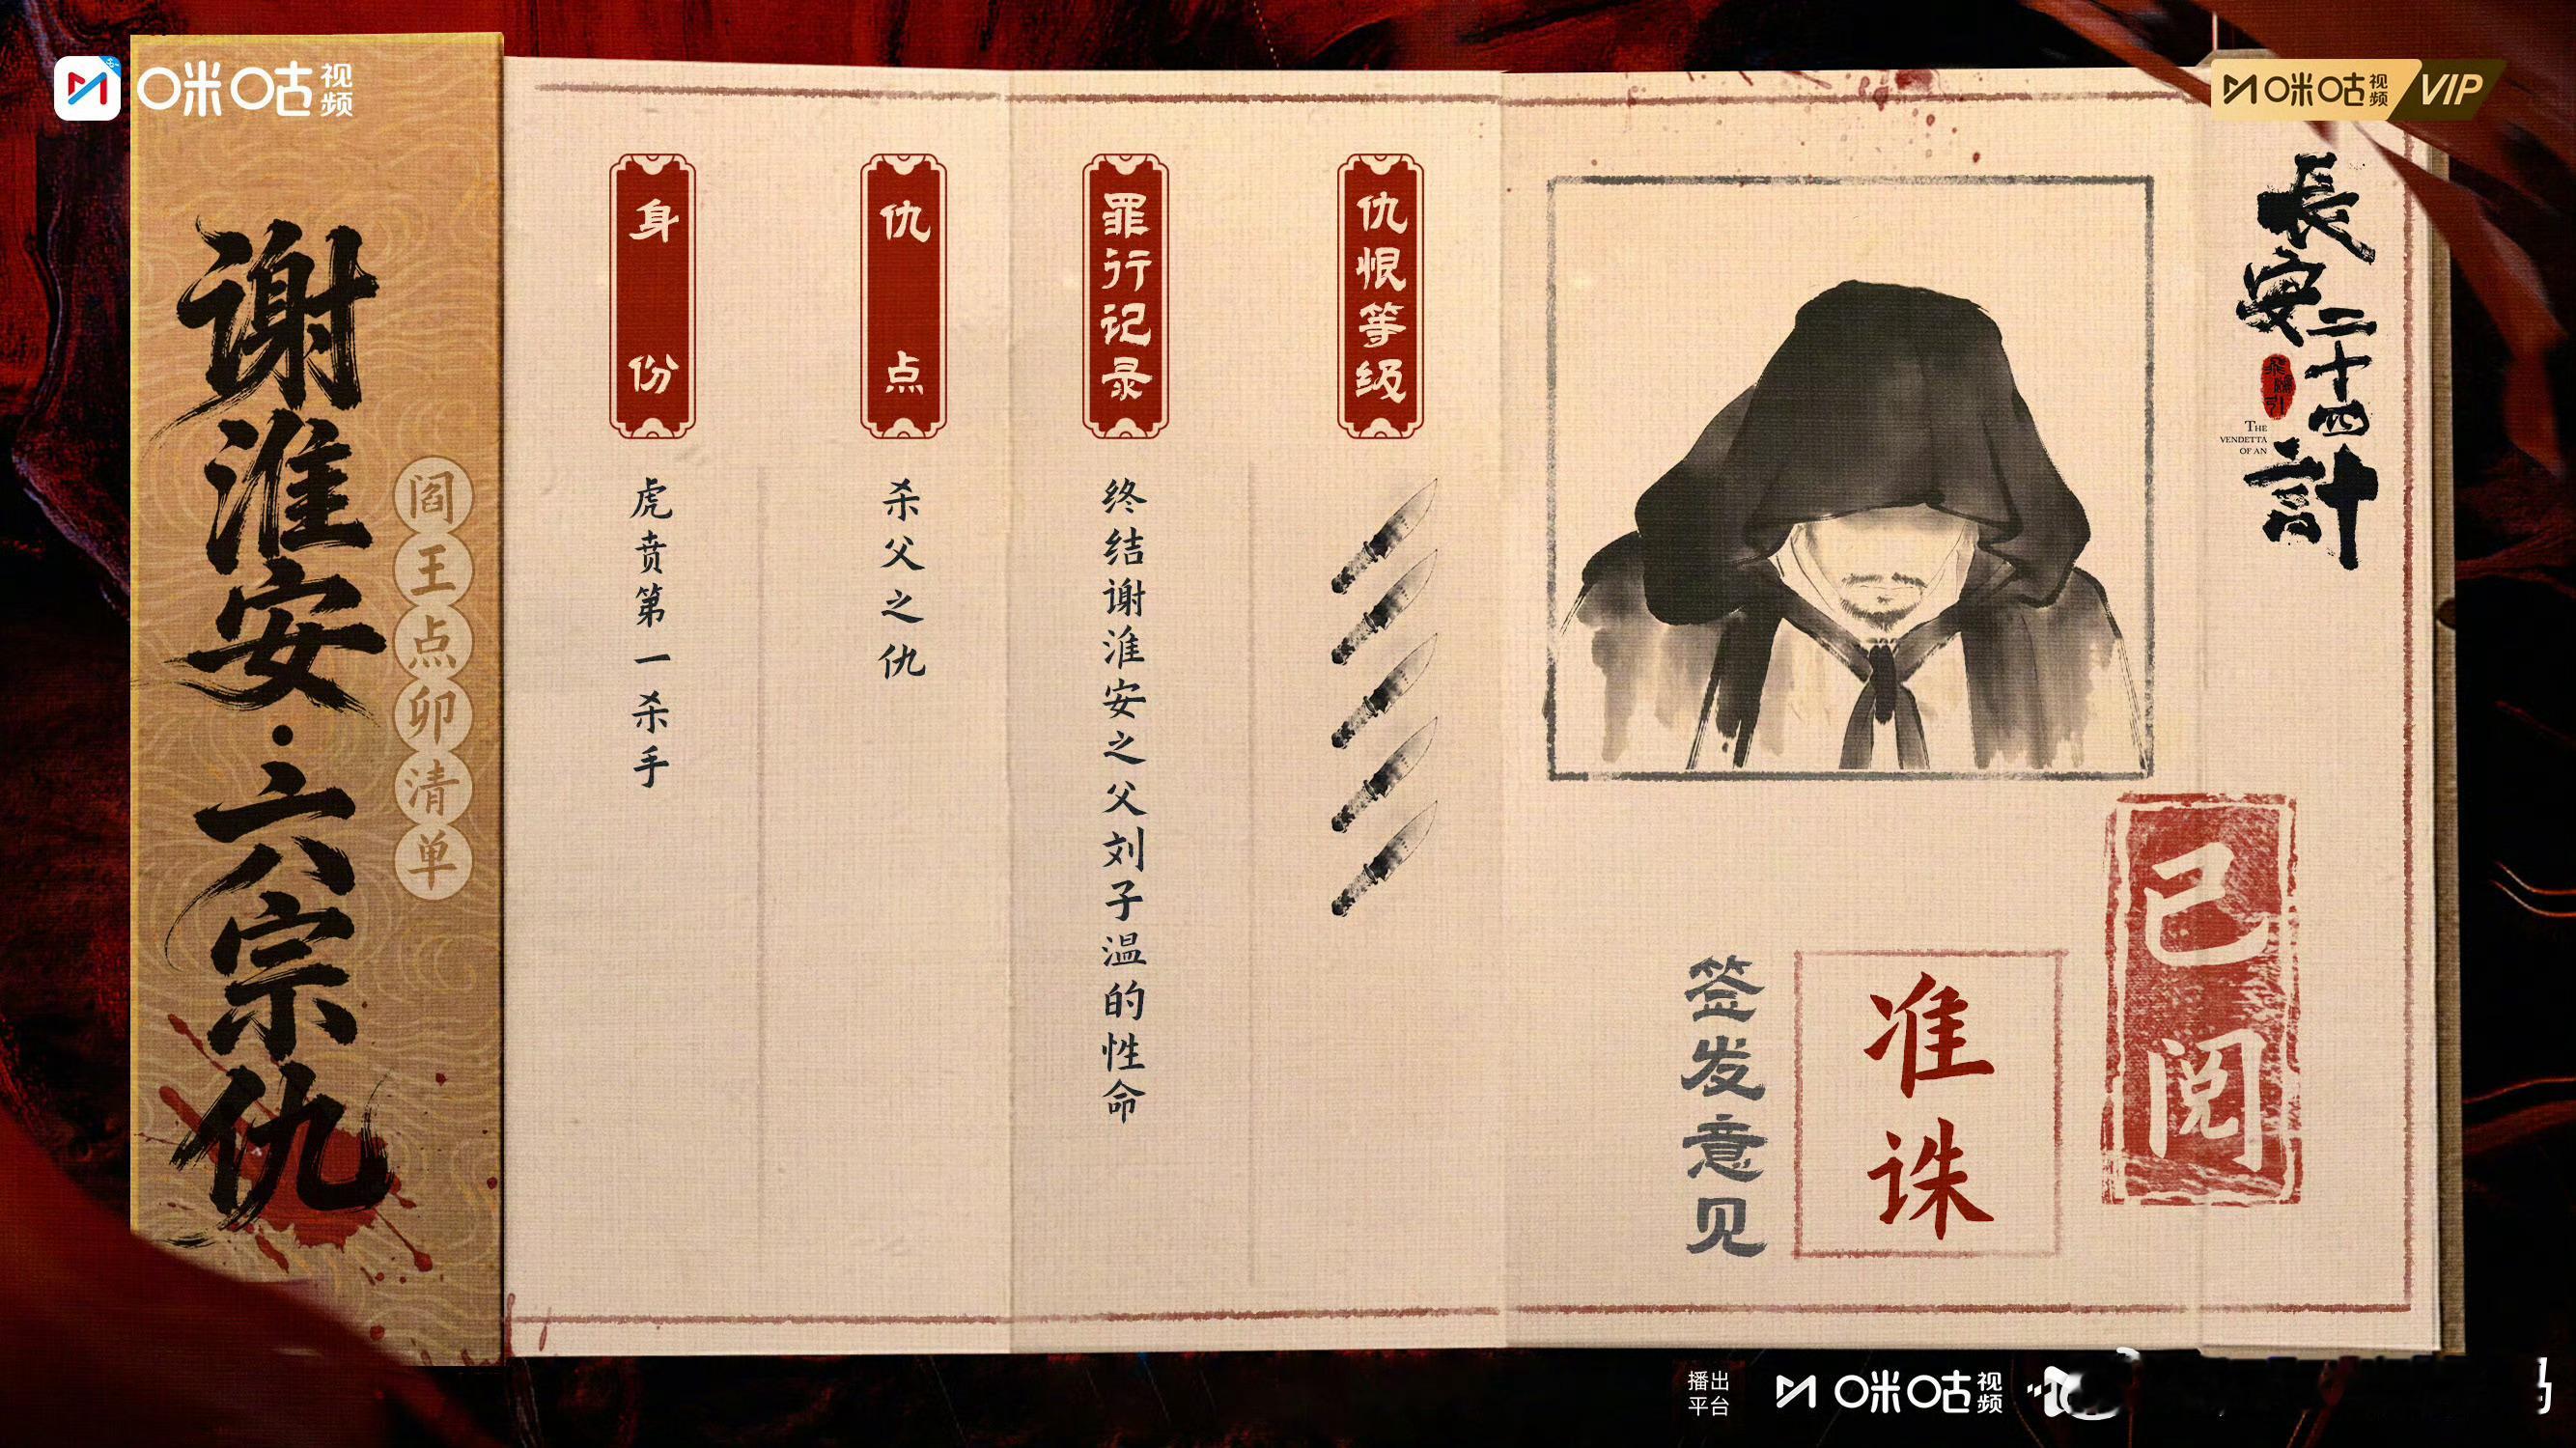 咪咕视频
咪咕视频 VIP
谢淮安·六宗仇
阎王点卯清单
身份
虎贲第一杀手
仇点
杀父之仇
罪行记录
终结谢淮安之父刘子温的性命
仇恨等级
長安二十四計
THE
VENDETTA
OF AN
签发意见
准诛
已阅
播出
平台
咪咕视频